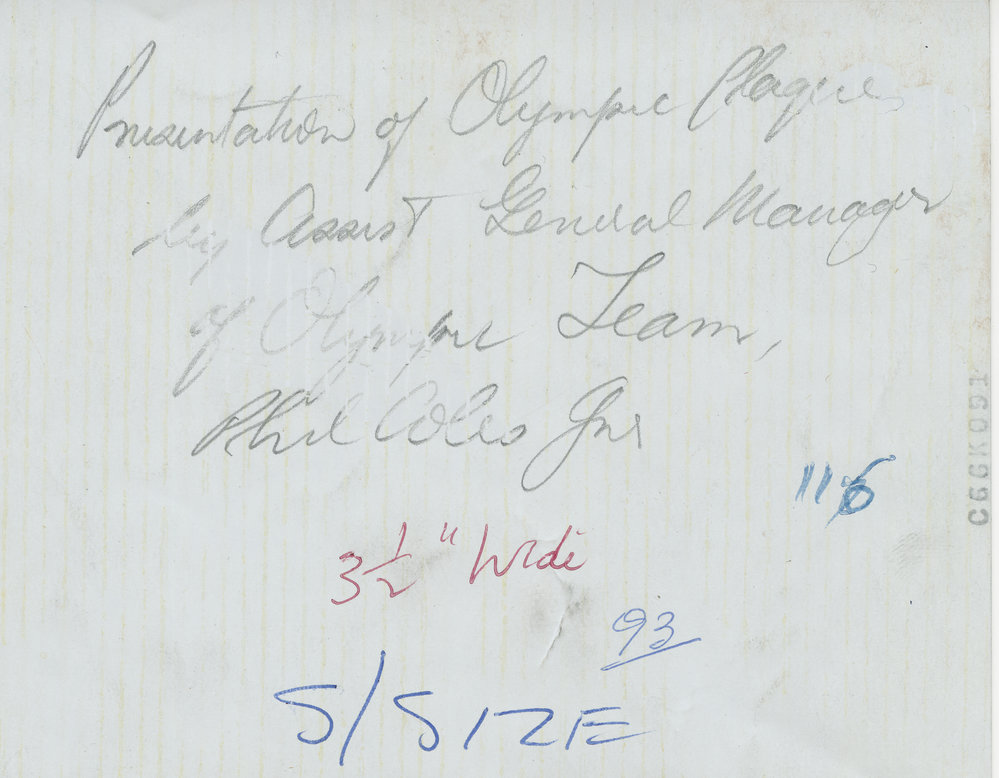 Presentation of Olympic Plaque
by Assist General Manager
of Olympic Team,
Phil Coles Jnr
116
3 1/2" Wide
93
S/SIZE
C66K091